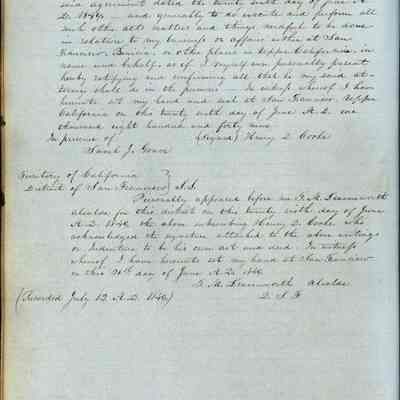 said agreement dated the twenty sixth day of June A
D. 1849 — and generally to do execute and perform all
such other acts matters and things needful to be done
in relation to my business or affairs either at San
Francisco, Benicia, or other places in Upper California, in
name and behalf, as if I myself were personally present
hereby ratifying and confirming all that he my said at-
torney shall do in the premises — In witness whereof I have
hereunto set my hand and seal at San Francisco Upper
California on this twenty sixth day of June A.D. one
thousand eight hundred and forty nine
In presence of (Signed) Henry D. Cooke
Sarah J.
Territory of California }
District of San Francisco S.S.
Personally appeared before me T. M. Leavenworth
alcalde for this district on this twenty sixth day of June
A.D. 1849 the above subscribing Henry D. Cooke who
acknowledged the signature attached to the above writings
or Indenture to be his own act and deed. In witness
whereof I have hereunto set my hand at San Francisco
on this 26th day of June A.D. 1849
T. M. Leavenworth Alcalde
D. S. F
(Recorded July 12 A.D. 1849)